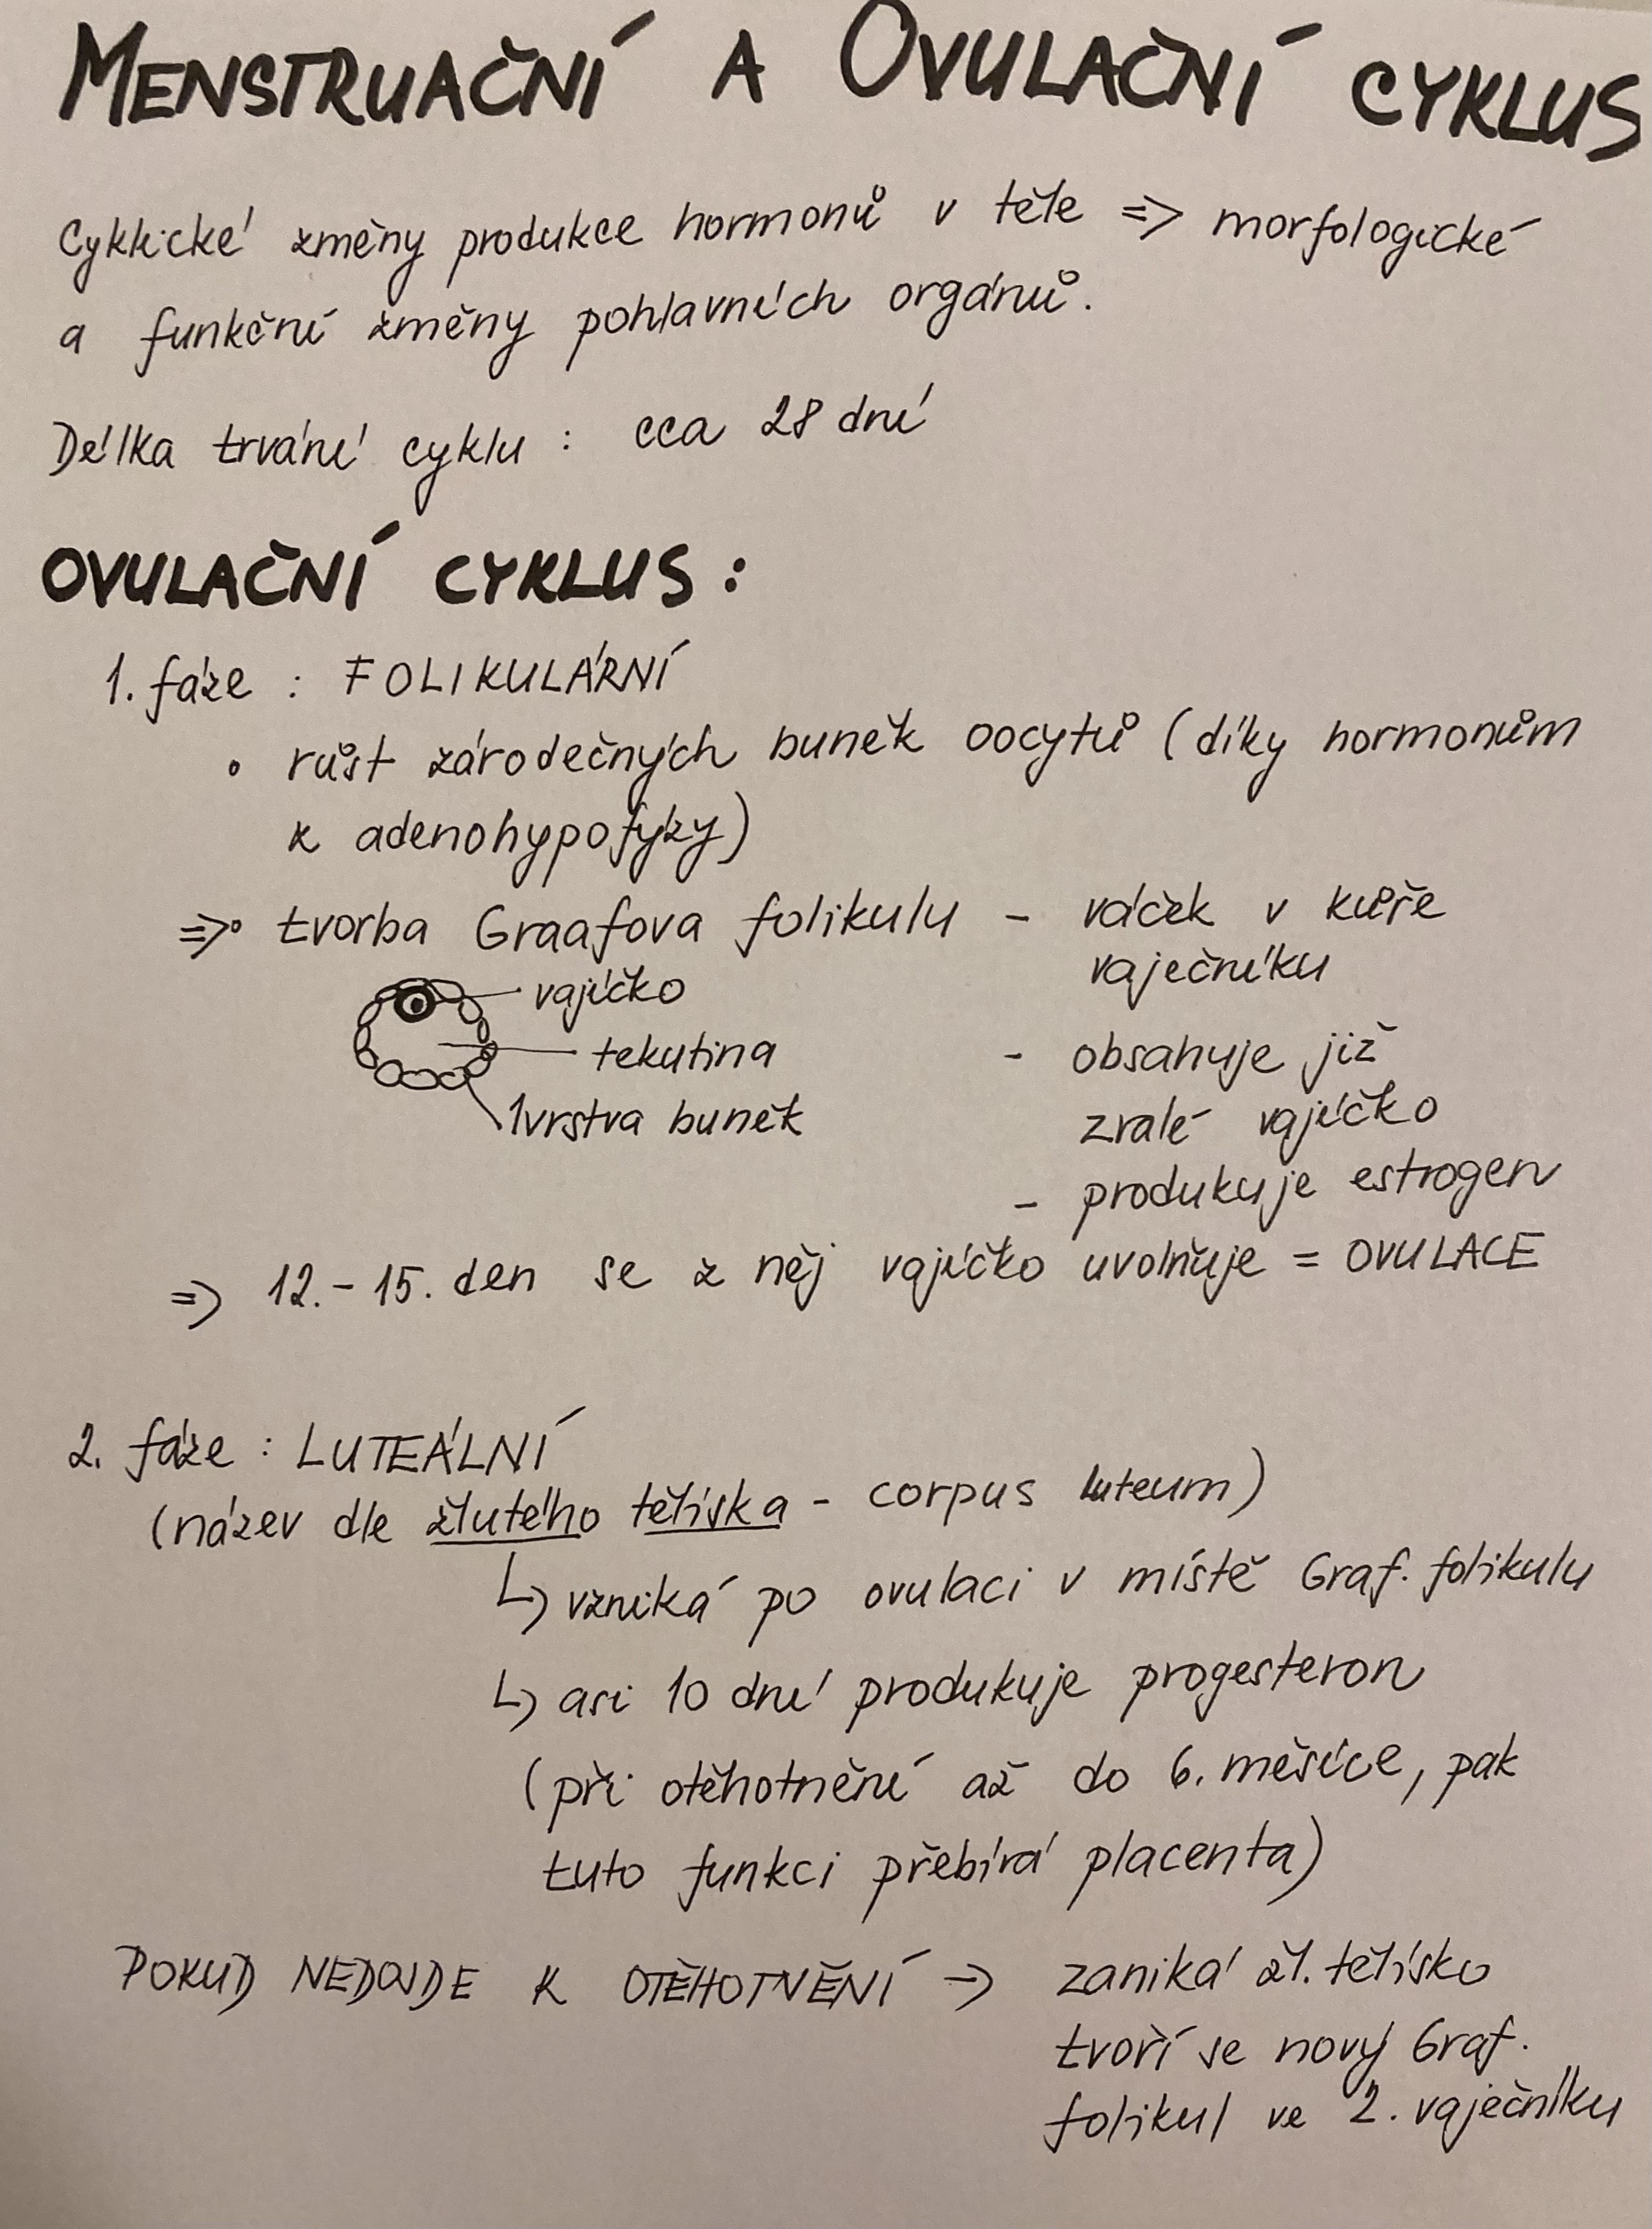 MENSTRUAČNÍ A OVULAČNÍ CYKLUS
Cyklické změny produkce hormonů v těle => morfologické
a funkční změny pohlavních orgánů.
Délka trvání cyklu : cca 28 dní
OVULAČNÍ CYKLUS :
1. fáze : FOLIKULÁRNÍ
• růst zárodečných buněk oocytů (díky hormonům
z adenohypofýzy)
=> • tvorba Graafova folikulu - váček v kůře
vaječníku
vajíčko
tekutina
- obsahuje již
1vrstva buněk
zralé vajíčko
- produkuje estrogen
=> 12. - 15. den se z něj vajíčko uvolňuje = OVULACE
2. fáze : LUTEÁLNÍ
(název dle žlutého tělíska - corpus luteum)
↳ vzniká po ovulaci v místě Graf. folikulu
↳ asi 10 dní produkuje progesteron
(při otěhotnění až do 6. měsíce, pak
tuto funkci přebírá placenta)
POKUD NEDOJDE K OTĚHOTNĚNÍ -> zaniká žl. tělísko
tvoří se nový Graf.
folikul ve 2. vaječníku